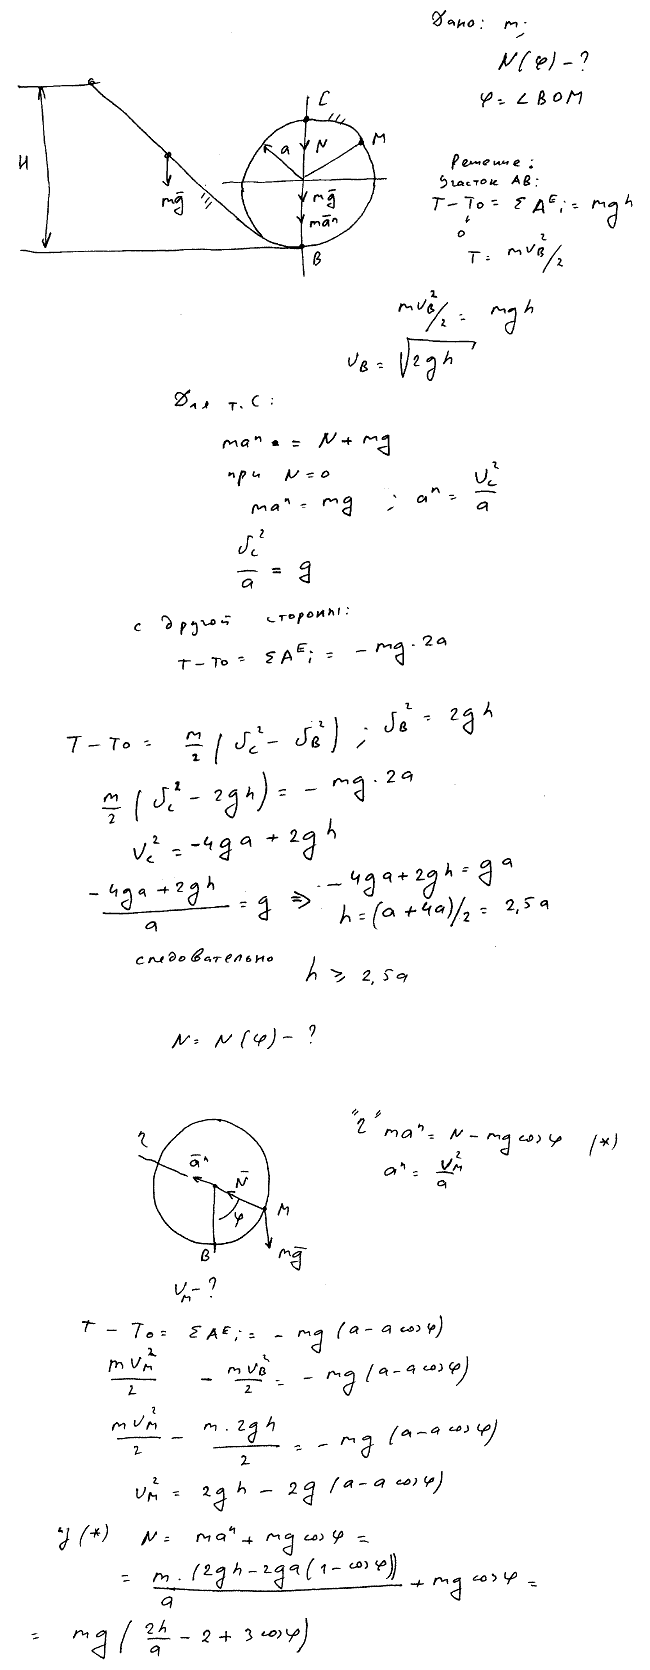 Дано: m;
N(φ) - ?
φ = ∠BOM
C
M
a
N
H
mḡ
mḡ
māⁿ
B
Решение:
Участок AB:
T - T₀ = ΣAᴱᵢ = mgh
0
T = mv_B²/2
mv_B²/2 = mgh
v_B = √2gh
Для т. C:
maⁿ = N + mg
при N = 0
maⁿ = mg ; aⁿ = v_c²/a
v_c²/a = g
с другой стороны:
T - T₀ = ΣAᴱᵢ = - mg · 2a
T - T₀ = m/2 (v_c² - v_B²) ; v_B² = 2gh
m/2 (v_c² - 2gh) = - mg · 2a
v_c² = -4ga + 2gh
(-4ga + 2gh)/a = g ⇒ -4ga + 2gh = ga
h = (a + 4a)/2 = 2,5a
следовательно h ⩾ 2,5a
N = N(φ) - ?
"η" maⁿ = N - mg cos φ (*)
aⁿ = v_M²/a
η
āⁿ
N̄
M
φ
B
mḡ
v_M - ?
T - T₀ = ΣAᴱᵢ = - mg (a - a cos φ)
mv_M²/2 - mv_B²/2 = - mg (a - a cos φ)
mv_M²/2 - m · 2gh/2 = - mg (a - a cos φ)
v_M² = 2gh - 2g (a - a cos φ)
Из (*) N = maⁿ + mg cos φ =
= m · (2gh - 2ga(1 - cos φ))/a + mg cos φ =
= mg (2h/a - 2 + 3 cos φ)